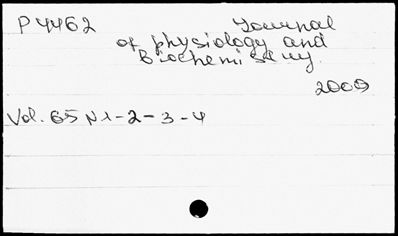 P4462 Journal
of physiology and
Biochemistry.
2009
Vol. 65 N 1-2-3-4